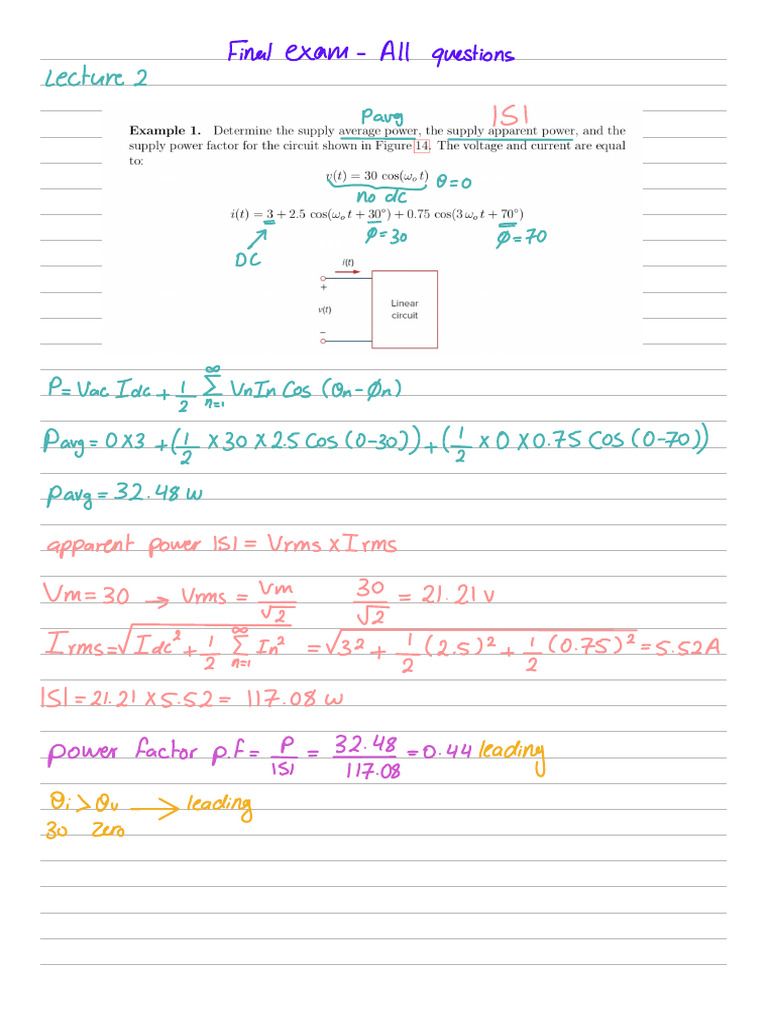 Final exam - All questions
Lecture 2
Pavg |S|
Example 1. Determine the supply average power, the supply apparent power, and the
supply power factor for the circuit shown in Figure 14. The voltage and current are equal
to:
v(t) = 30 cos(ωₒ t) θ=0
no dc
i(t) = 3 + 2.5 cos(ωₒ t + 30°) + 0.75 cos(3 ωₒ t + 70°)
DC ϕ=30 ϕ=70
i(t)
+
v(t)
Linear
circuit
−
P= Vac Idc + 1/2 ∞Σn=1 Vn In Cos (θn-ϕn)
Pavg = 0X3 + (1/2 X 30 X 2.5 Cos (0-30)) + (1/2 X 0 X 0.75 Cos (0-70))
pavg = 32.48 w
apparent power |S| = Vrms X Irms
Vm = 30 → Vrms = Vm/√2 30/√2 = 21.21 v
Irms = √Idc² + 1/2 ∞Σn=1 In² = √32 + 1/2 (2.5)² + 1/2 (0.75)² = 5.52A
|S| = 21.21 X 5.52 = 117.08 w
power factor p.f = P/|S| = 32.48/117.08 = 0.44 leading
θi > θv → leading
30 zero